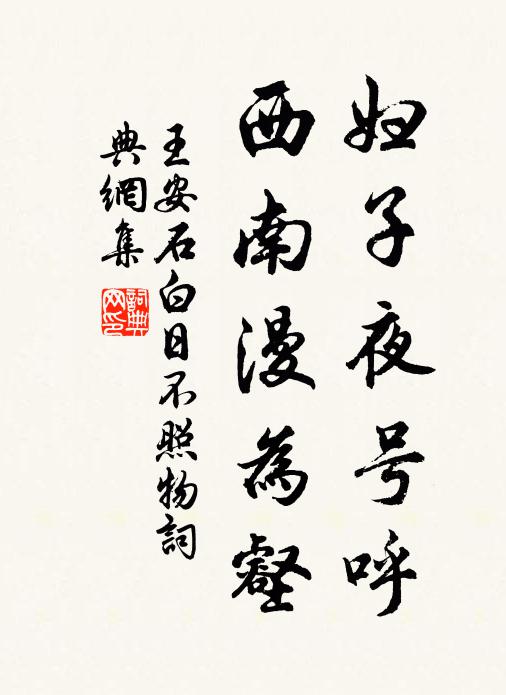 妇子夜号呼
西南漫為壑
王安石白日不照物詞
典網集
詞典網印